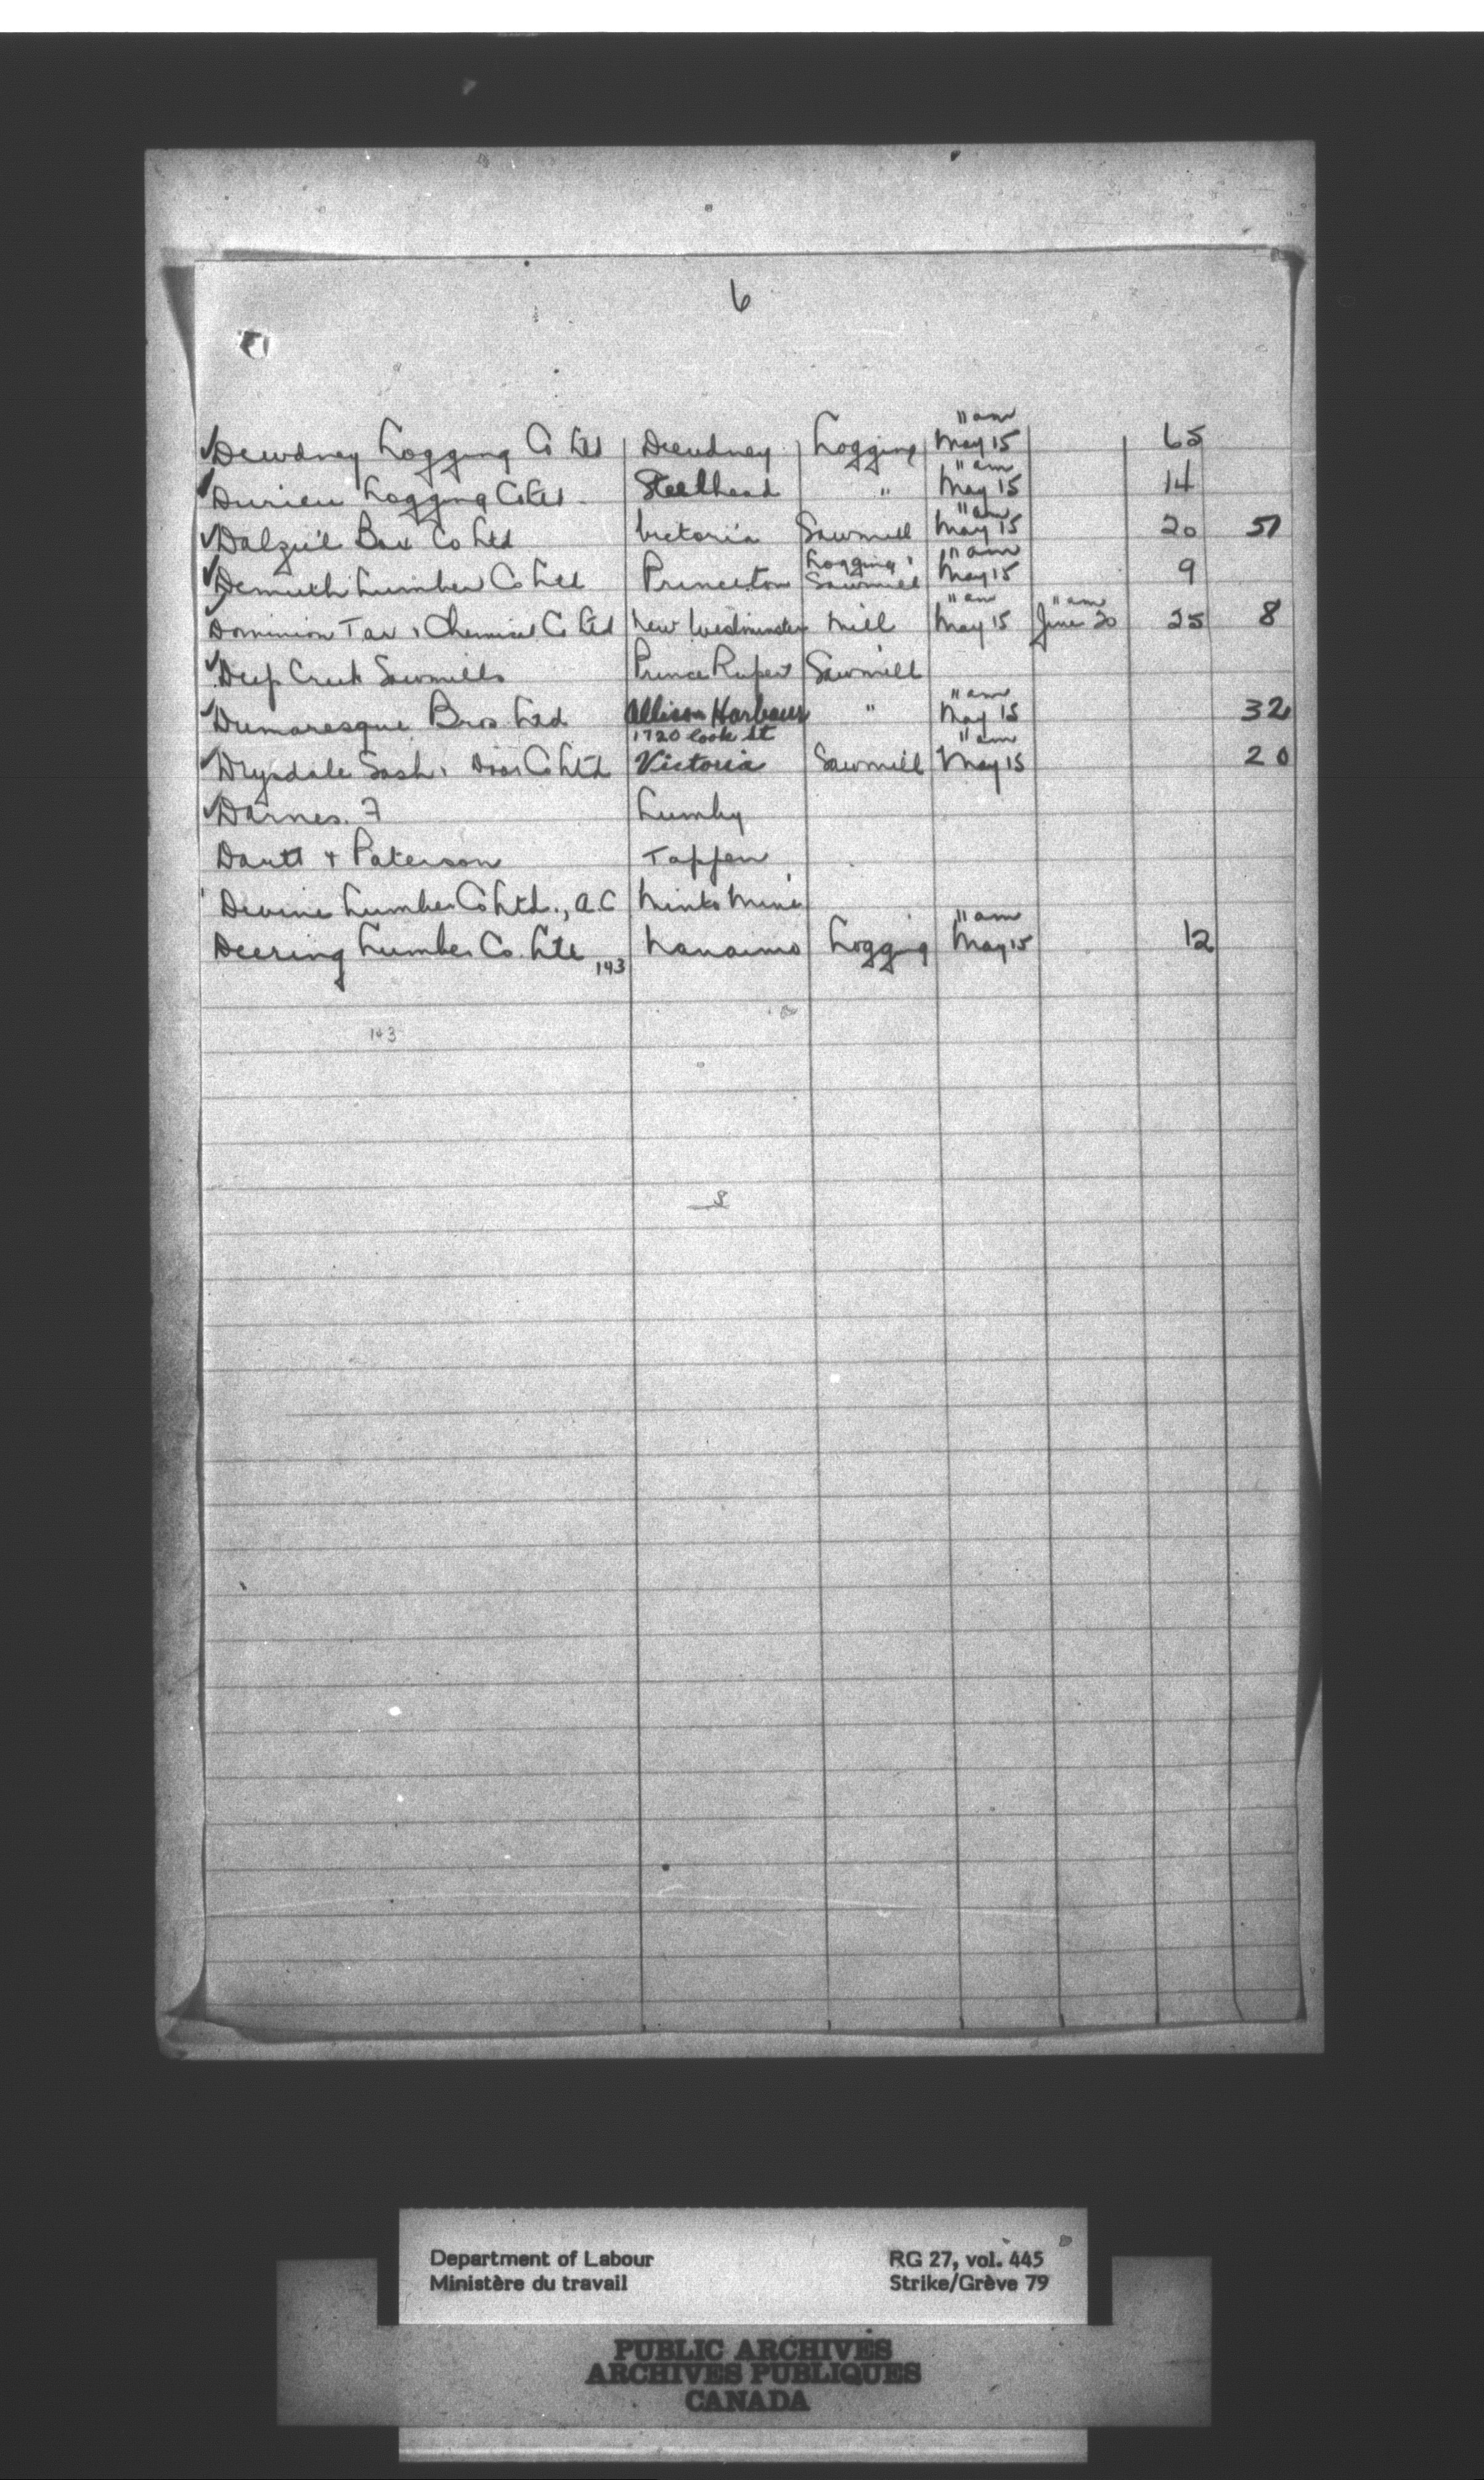 6
11 am
✓Dewdney Logging Co Ltd Dewdney Logging May 15 65
11 am
✓Durieu Logging Co Ltd. Steelhead " May 15 14
11 am
✓Dalziel Box Co Ltd Victoria Sawmill May 15 20 51
Logging & 11 am
✓Demuth Lumber Co Ltd Princeton Sawmill May 15 9
11 am 11 am
✓Dominion Tar & Chemical Co Ltd New Westminster Mill May 15 June 20 25 8
✓Deep Creek Sawmills Prince Rupert Sawmill
11 am
✓Dumaresque Bros Ltd Allison Harbour " May 15 32
1720 Cook St 11 am
✓Drysdale Sash & Door Co Ltd Victoria Sawmill May 15 20
✓Darnes. F Lumby
Dartt & Paterson Tappen
Devine Lumber Co Ltd., A.C Minto Mine
11 am
Deering Lumber Co. Ltd Nanaimo Logging May 15 12
143
143
8
Department of Labour RG 27, vol. 445
Ministère du travail Strike/Grève 79
PUBLIC ARCHIVES
ARCHIVES PUBLIQUES
CANADA